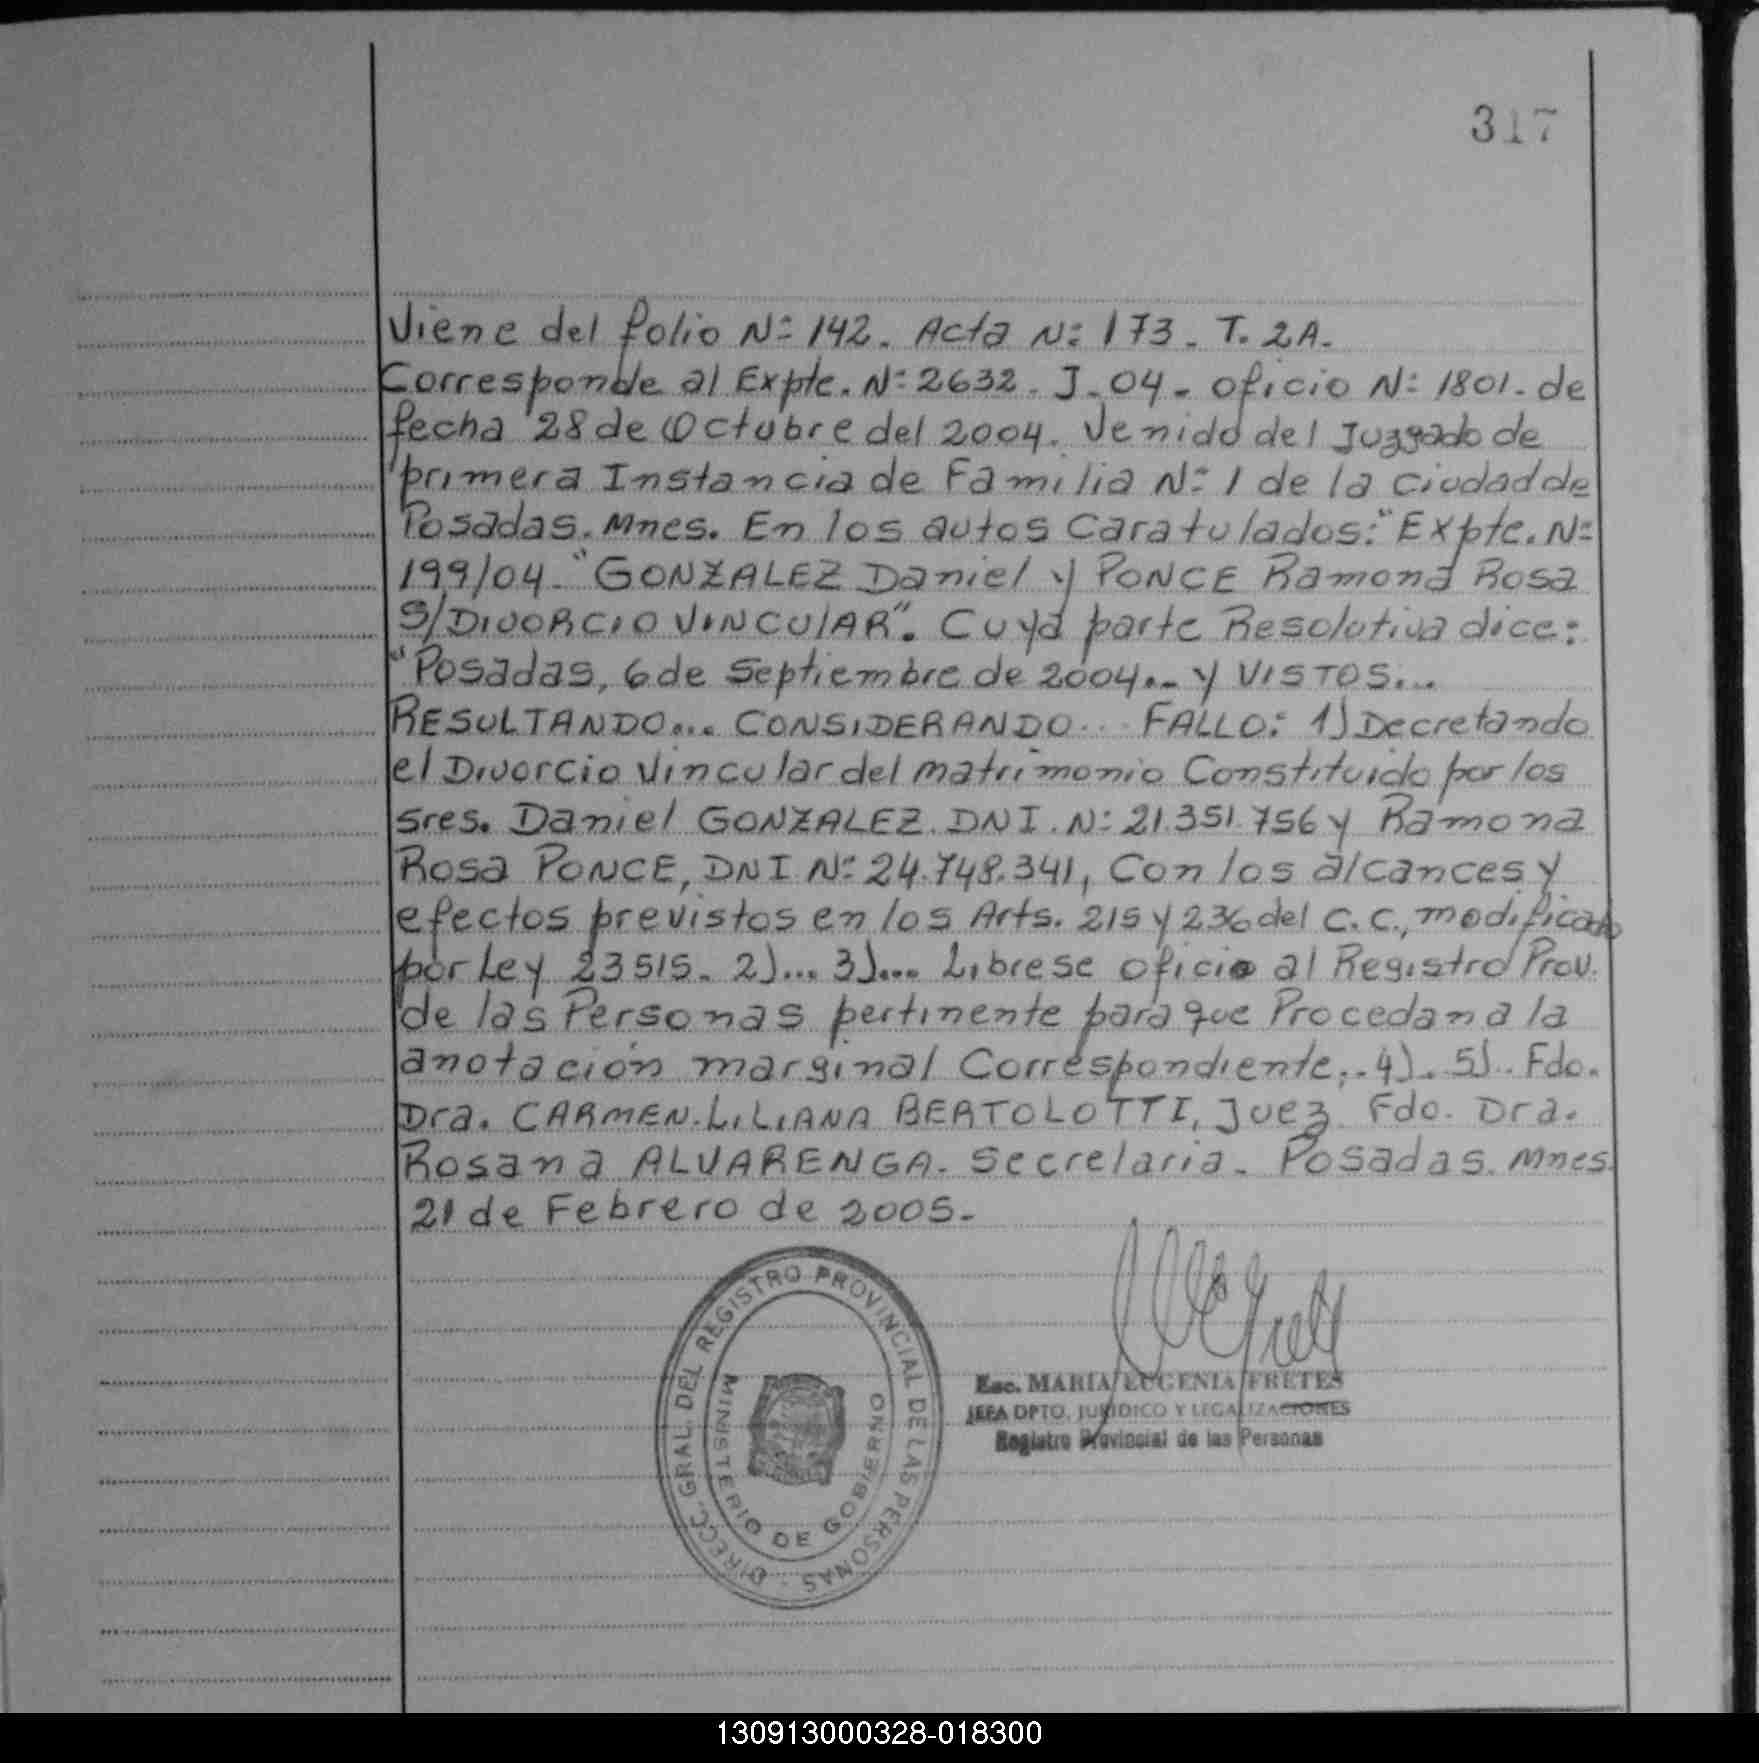 317
Viene del folio Nº 142. Acta Nº 173. T. 2A.
Corresponde al Expte. Nº 2632. J. 04. oficio Nº 1801. de
fecha 28 de Octubre del 2004. Venido del Juzgado de
primera Instancia de Familia Nº 1 de la Ciudad de
Posadas. Mnes. En los autos Caratulados: "Expte. Nº
199/04. "GONZALEZ Daniel y PONCE Ramona Rosa
S/DIVORCIO VINCULAR". Cuya parte Resolutiva dice:
"Posadas, 6 de Septiembre de 2004.- y VISTOS...
RESULTANDO... CONSIDERANDO... FALLO: 1) Decretando
el Divorcio Vincular del matrimonio Constituido por los
Sres. Daniel GONZALEZ. DNI. Nº 21.351.756 y Ramona
Rosa PONCE, DNI Nº 24.748.341, Con los alcances y
efectos previstos en los Arts. 215 y 236 del C.C., modificado
por Ley 23515. 2)... 3)... Librese oficio al Registro Prov.
de las Personas pertinente para que Procedan a la
anotación marginal Correspondiente... 4). 5).. Fdo.
Dra. CARMEN. LILIANA BERTOLOTTI, Juez. Fdo. Dra.
Rosana ALVARENGA. Secretaria. Posadas. Mnes.
21 de Febrero de 2005.
DIRECC. GRAL. DEL REGISTRO PROVINCIAL DE LAS PERSONAS
MINISTERIO DE GOBIERNO
Esc. MARIA EUGENIA FRETES
JEFA DPTO. JURIDICO Y LEGALIZACIONES
Registro Provincial de las Personas
130913000328-018300